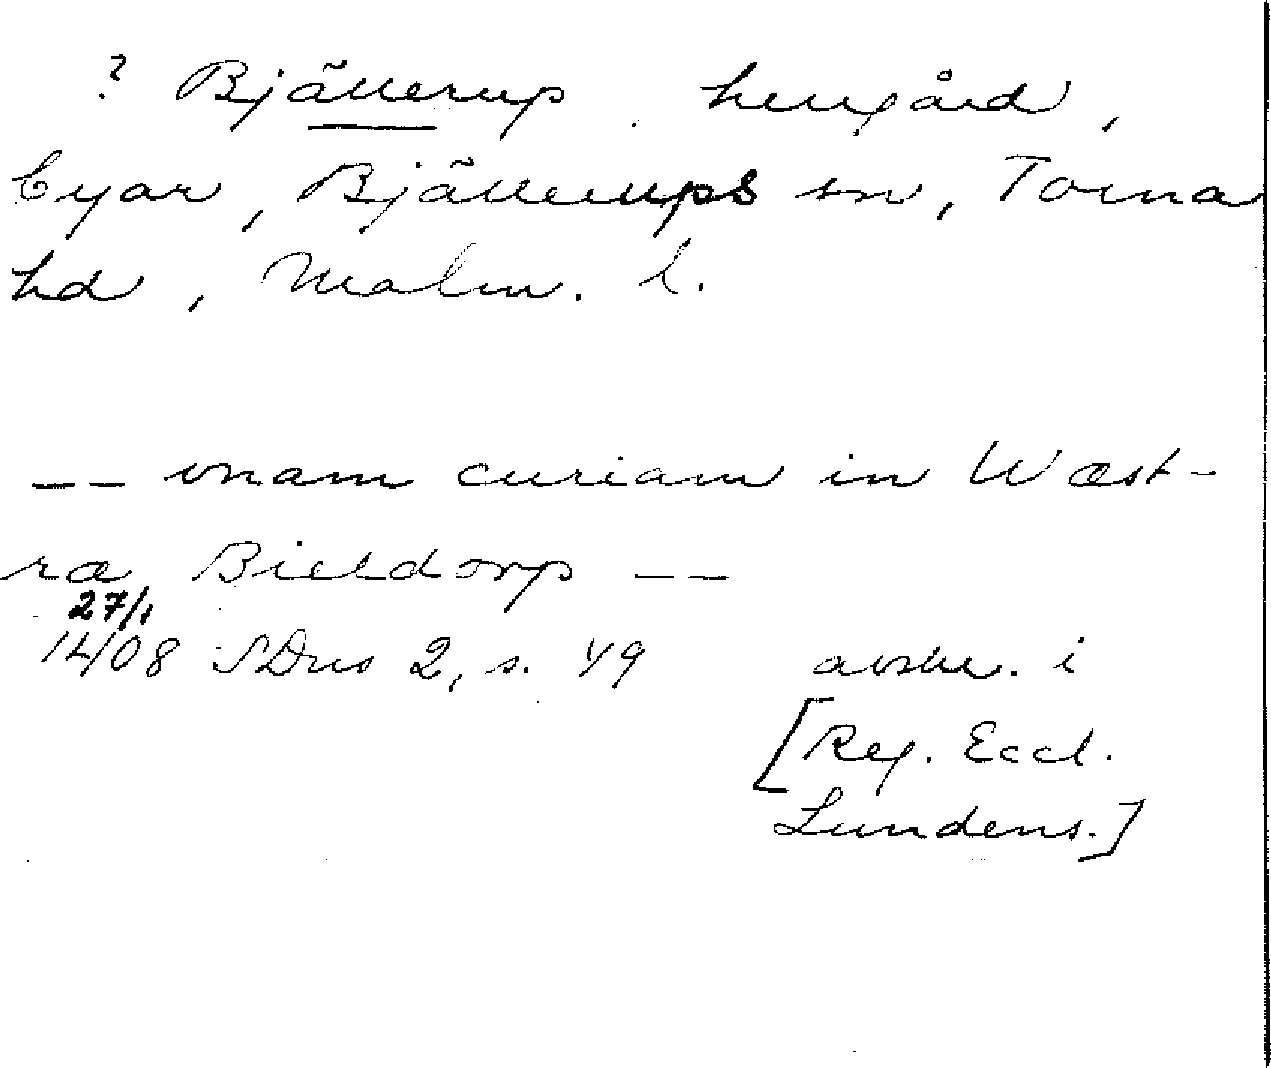 ? Bjällerup herrgård,
byar, Bjällerups sn, Torna
hd, Malm. l.
-- vnam curiam in Wæst-
ræ Bieldorp --
27/1
1408 SDns 2, s. 49 avskr. i
[Reg. Eccl.
Lundens.]